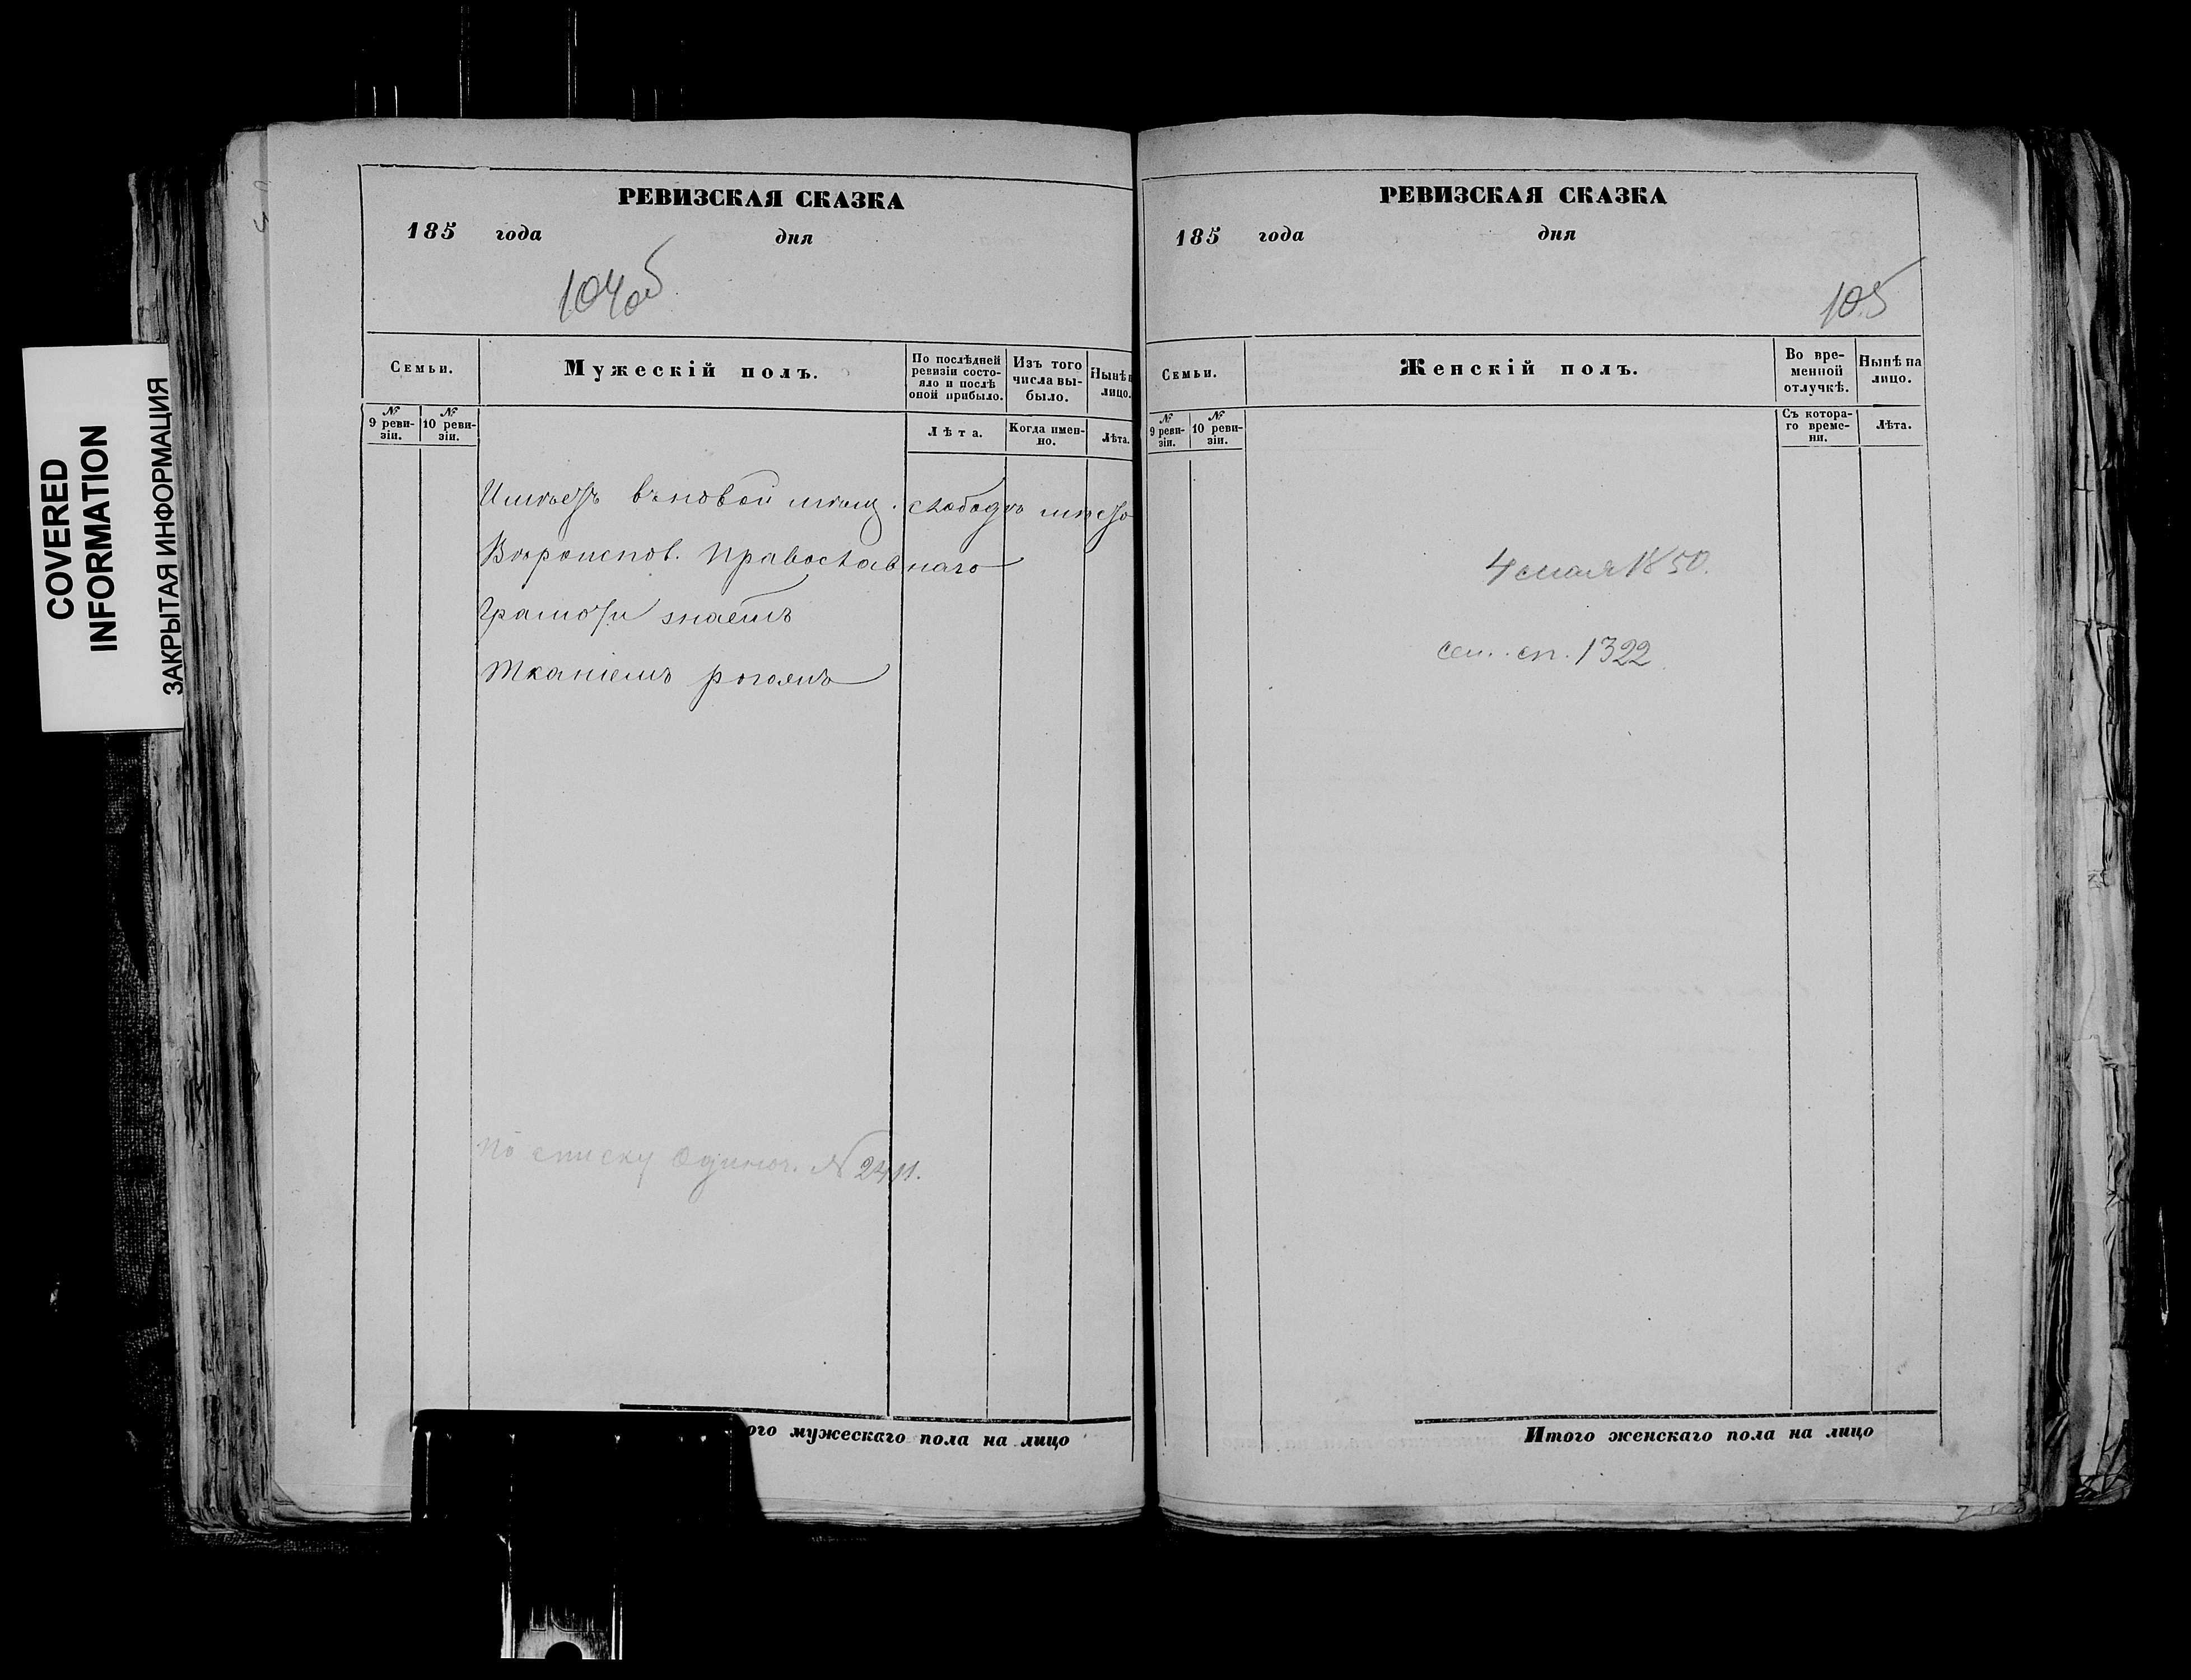 COVERED
INFORMATION
ЗАКРЫТАЯ ИНФОРМАЦИЯ
РЕВИЗСКАЯ СКАЗКА
185 года дня
104об
Семьи.
Мужескій полъ.
По послѣдней
ревизіи состо-
яло и послѣ
оной прибыло.
Изъ того
числа вы-
было.
Нынѣ
лицо.
№
9 реви-
зіи.
№
10 реви-
зіи.
Лѣта.
Когда имен-
но.
Лѣта.
Имѣетъ въ новой мѣщ. слободѣ мѣсто
Вѣроиспов. Православнаго
Грамоти знаетъ
Тканіемъ рогожъ
По списку одиноч. № 2411.
ого мужескаго пола на лицо
РЕВИЗСКАЯ СКАЗКА
185 года дня
105
Семьи.
Женскій полъ.
Во вре-
менной
отлучкѣ.
Нынѣ на
лицо.
№
9 реви-
зіи.
№
10 реви-
зіи.
Съ котора-
го време-
ни.
Лѣта.
1850.
сем. сп. 1322
Итого женскаго пола на лицо